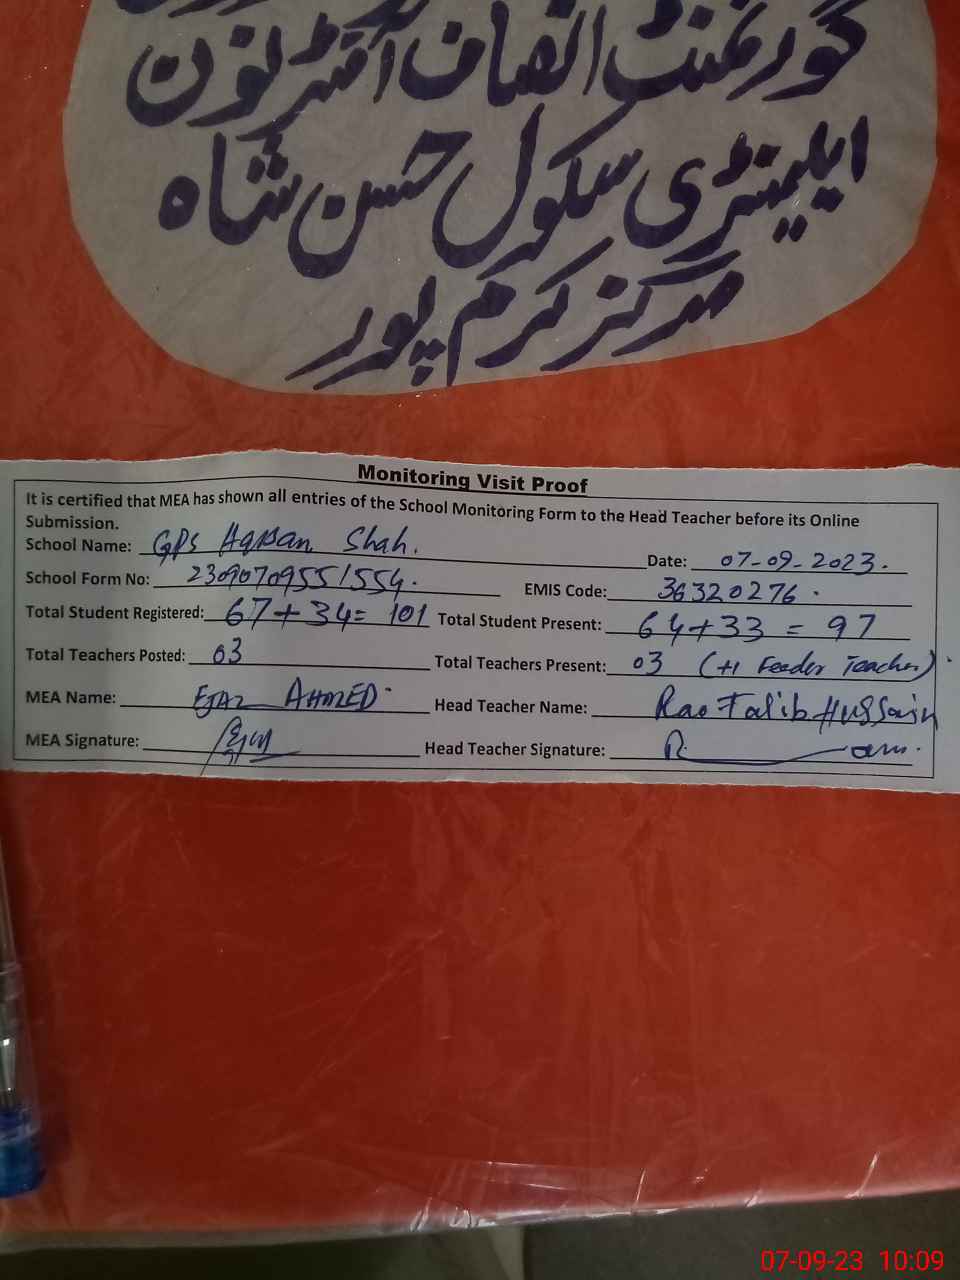 گورنمنٹ انصاف آفٹر نون
ایلیمنٹری سکول حسن شاہ
مرکز کرم پور
Monitoring Visit Proof
It is certified that MEA has shown all entries of the School Monitoring Form to the Head Teacher before its Online
Submission.
School Name: GPS Hassan Shah. Date: 07-09-2023.
School Form No: 23090709551554. EMIS Code: 36320276.
Total Student Registered: 67+34= 101 Total Student Present: 64+33 = 97
Total Teachers Posted: 03 Total Teachers Present: 03 (+1 Feeder Teacher)
MEA Name: EJAZ AHMED Head Teacher Name: Rao Talib Hussain
MEA Signature: Head Teacher Signature:
07-09-23 10:09